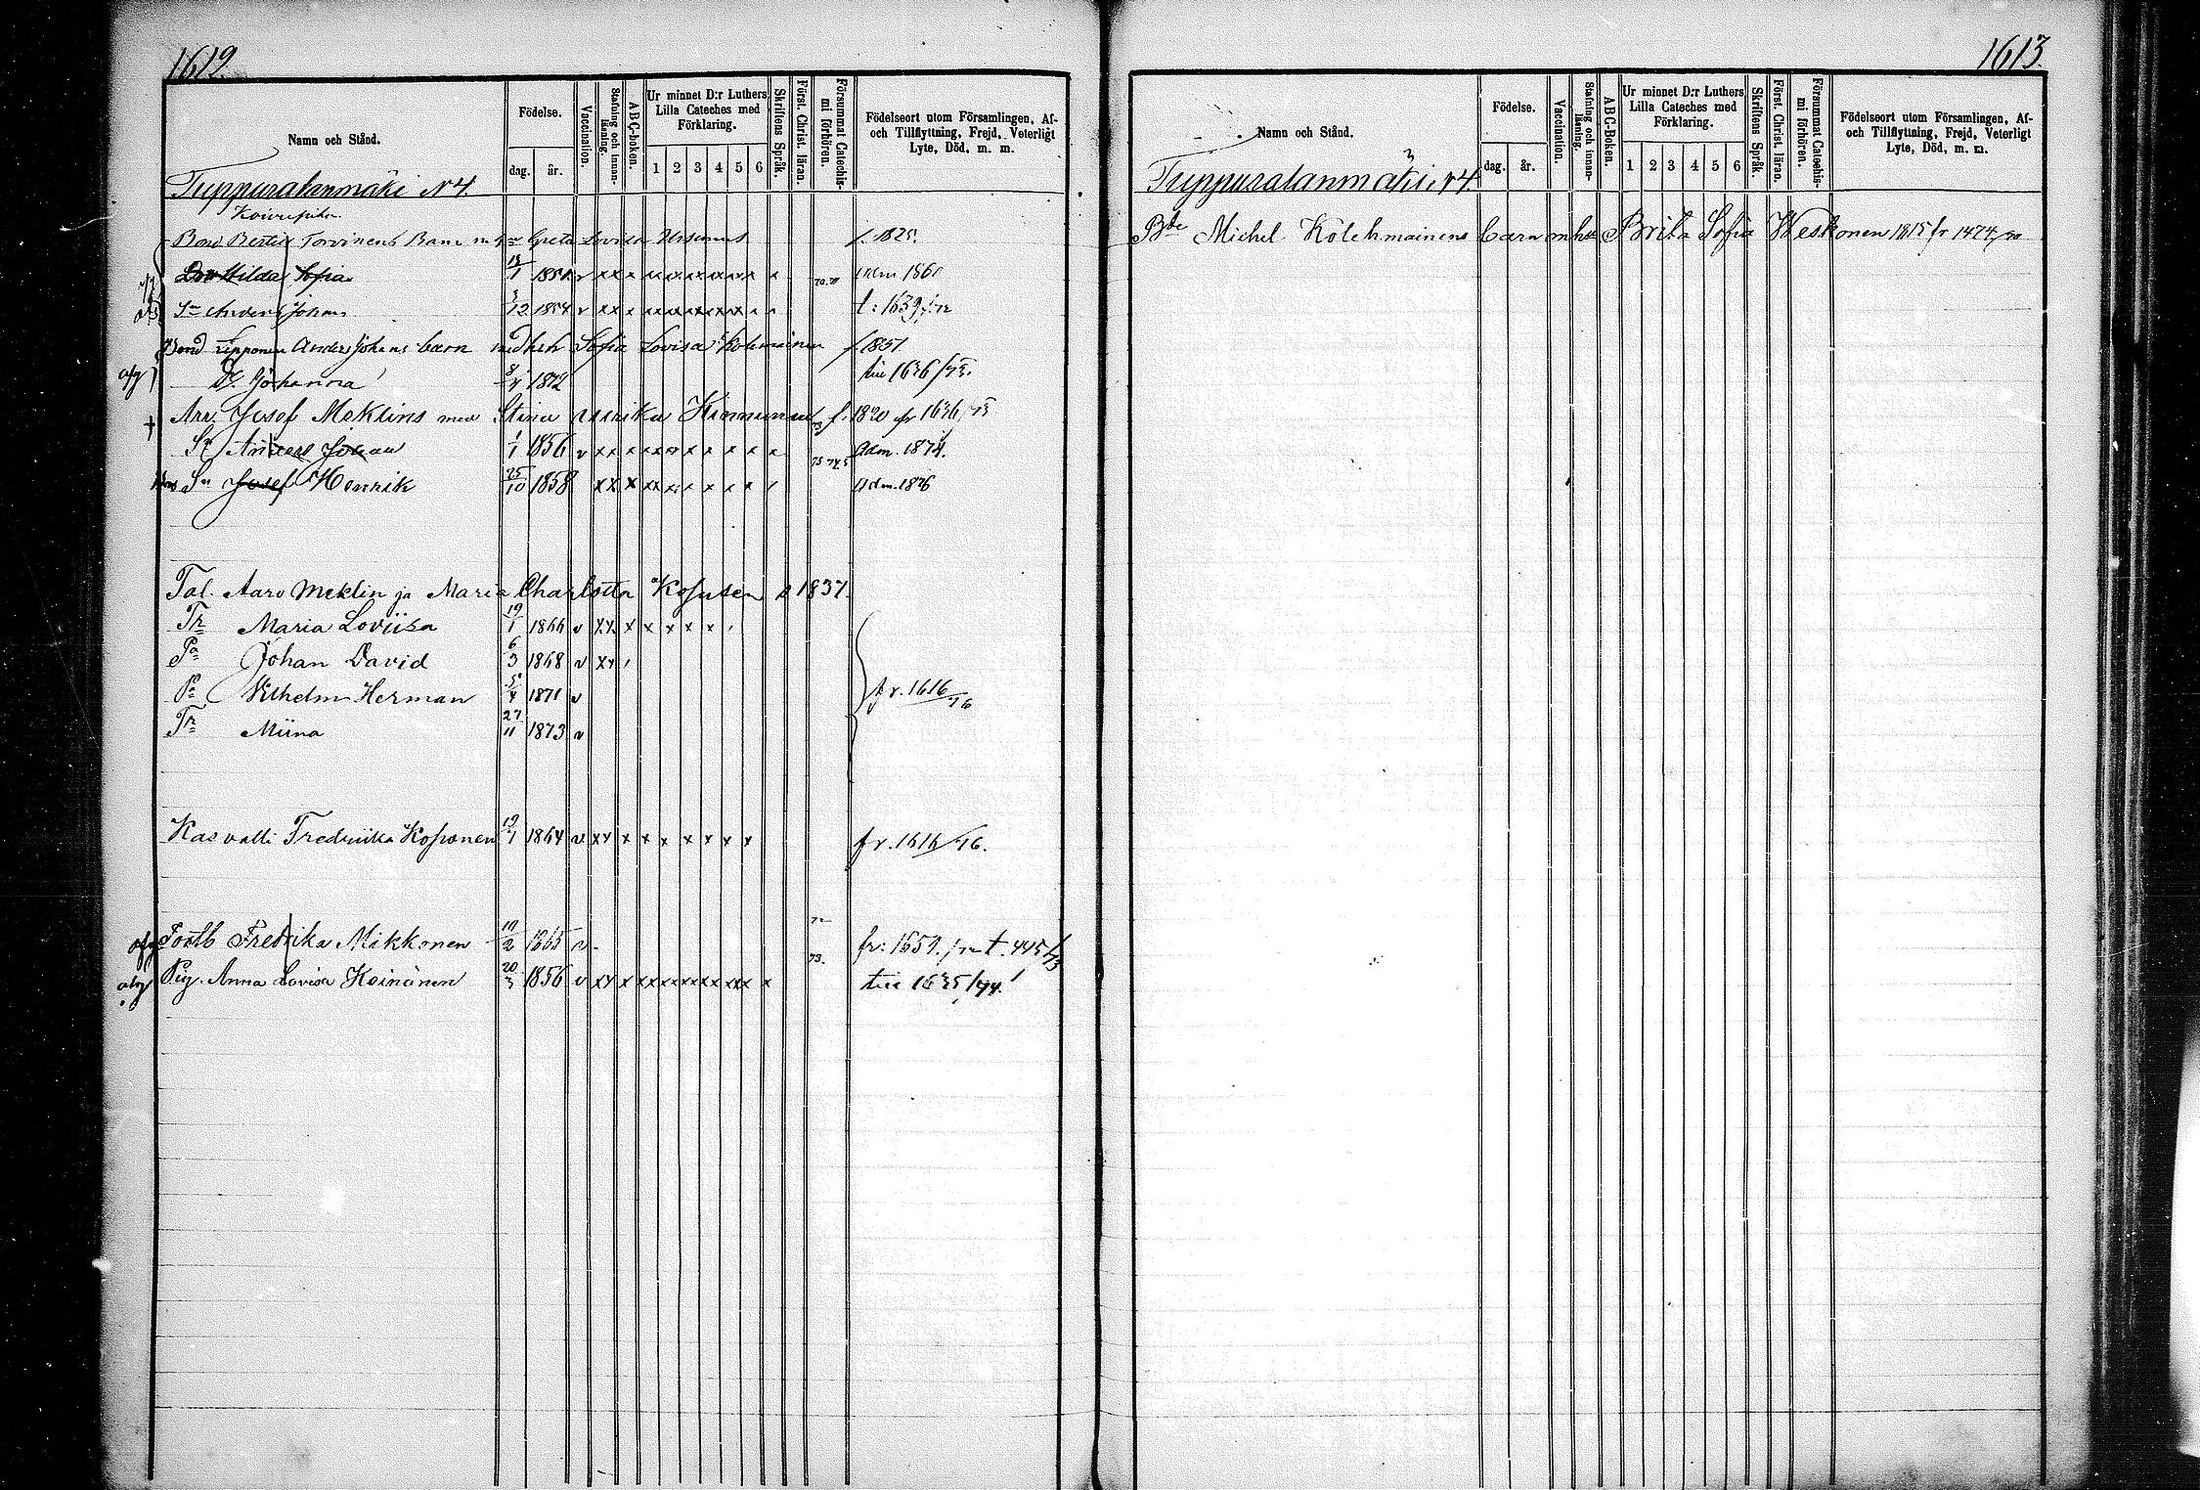 1612.
Namn och Stånd.
Födelse.
dag. år.
Vaccination.
Stafning och innan-läsning.
ABC-boken.
Ur minnet D:r Luthers Lilla Cateches med Förklaring.
1 2 3 4 5 6
Skriftens Språk.
Först. Christ. läran.
Försummat Catechis-mi förhören.
Födelseort utom Församlingen, Af- och Tillflyttning, Frejd, Veterligt Lyte, Död, m. m.
Tuppuralanmäki N 4.
Torvinens Barn Greta Lovisa f. 1825.
Hilda Sofia 13/1 1851 v x x x x x x x x x x x 70.71
Sn Anders Johan 3/12 1854 v x x x x x x x x x x x t: 1639/72
Bond Lipponen Anders Johans barn med hu Sofia Lovisa f. 1851
afg D. Johanna 8/4 1872 1636/75.
† Arr. Josef Meklins med Stina Ulrika Kinnunen f. 1820 fr 1636/73
Sn Anders Johan 1/1 1856 v x x x x x x x x x x x Adm. 1874.
Sn Josef Henrik 25/10 1858 x x x x x x x x x x Adm. 1876
Tal. Aaro Meklin ja Maria Charlotta Kosusen s 1837.
Tr Maria Loviisa 19/1 1866 v x x x x x x x
Pa Johan David 6/3 1868 v x x
Pa Vilhelm Herman 5/4 1871 v fr. 1616/76
Tr Miina 27/11 1873 v
Kasvatti Fredriika Kosonen 19/7 1864 v x x x x x x x x x fr. 1616/76.
afg Fostb Fredrika Mikkonen 10/2 1865 v 72 73. fr: 1659./72 t. 445/73
afg Pig. Anna Lovisa Keinänen 20/3 1856 v x x x x x x x x x x x 1635/74.
1613.
Namn och Stånd.
Födelse.
dag. år.
Vaccination.
Stafning och innan-läsning.
ABC-Boken.
Ur minnet D:r Luthers Lilla Cateches med Förklaring.
1 2 3 4 5 6
Skriftens Språk.
Först. Christ. läran.
Försummat Catechis-mi förhören.
Födelseort utom Församlingen, Af- och Tillflyttning, Frejd, Veterligt Lyte, Död, m. m.
Tuppuralanmäki N 4.
Bde Michel Kolehmainens barn m hu Brita Sofia Weskonen 1815 fr 1474/70